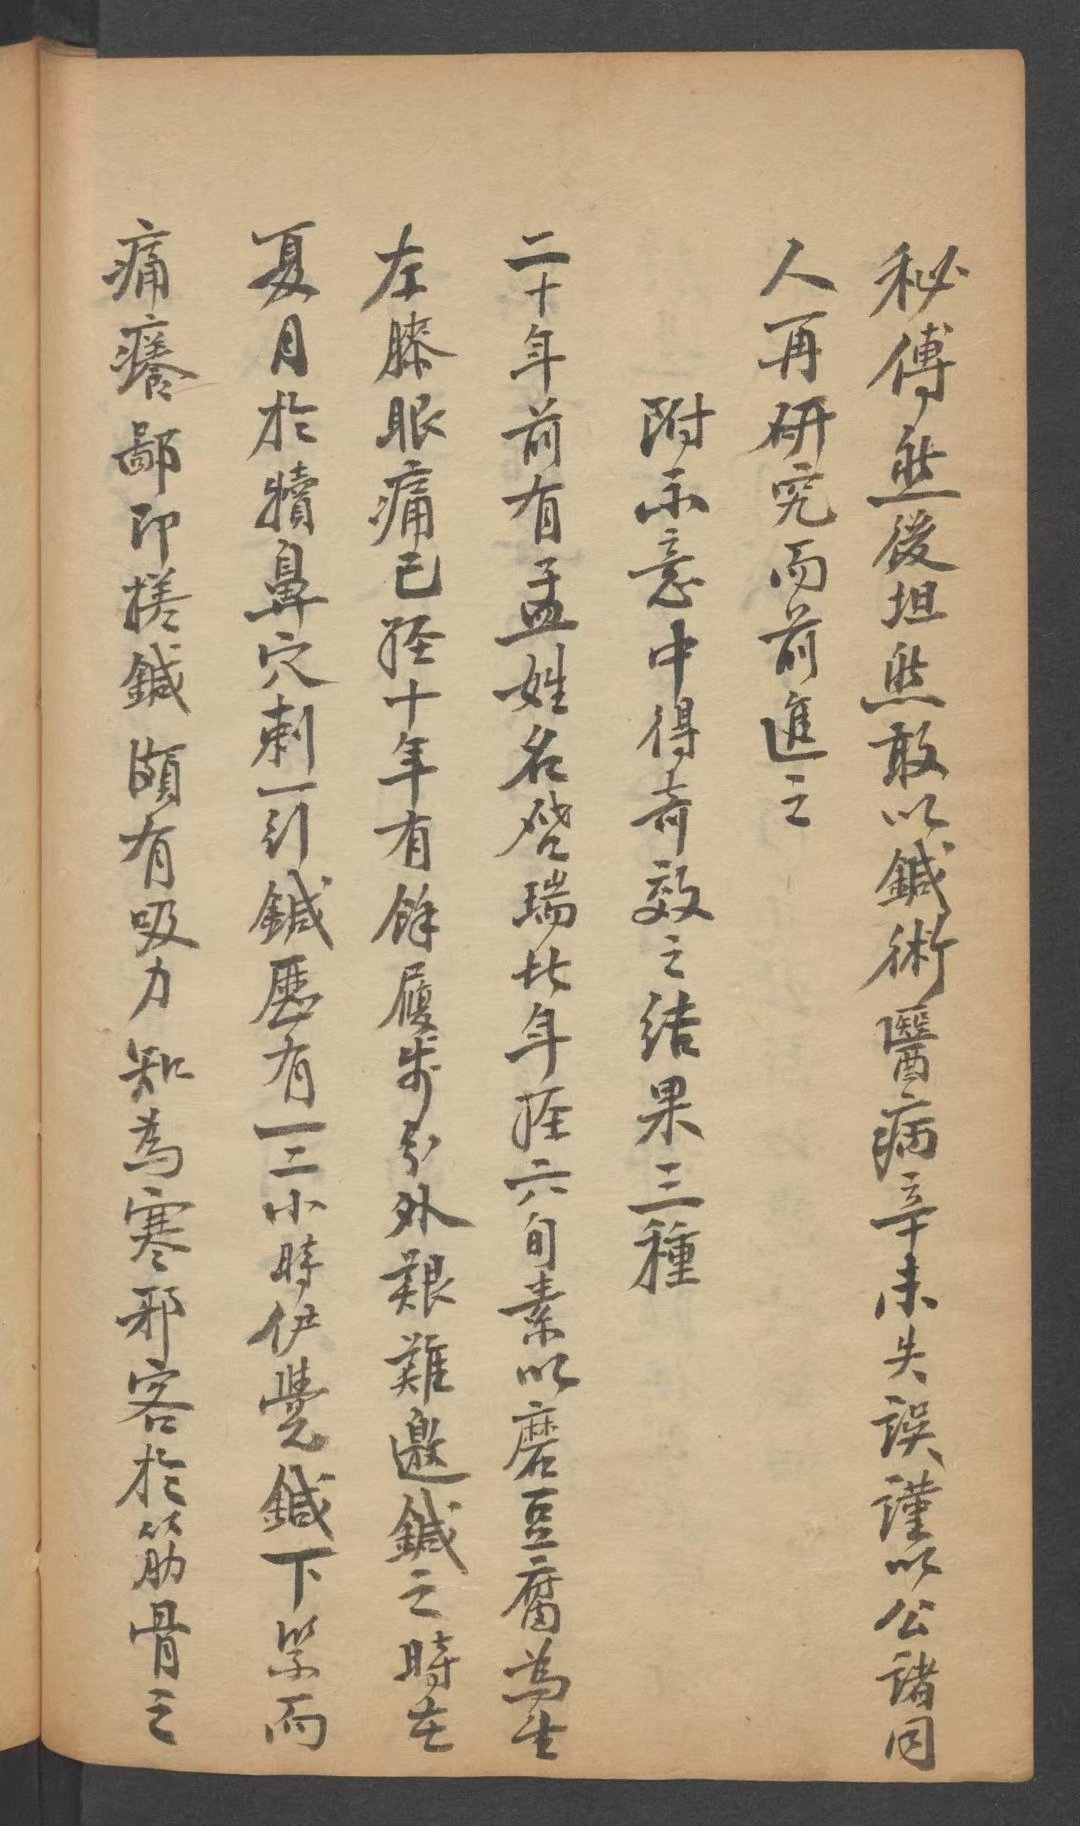 秘傳然後坦然敢以鍼術醫病辛未失誤謹以公諸同
人再研究而前進之
附示意中得奇效之結果三種
二十年前有孟姓名啓瑞比年經六旬素以磨豆腐為生
左膝眼痛已經十年有餘履步分外艱難邀鍼之時在
夏月於犢鼻穴刺一引鍼歷有一二小時伊覺鍼下緊而
痛癢鄙即搓鍼頗有吸力知為寒邪客於筋骨之